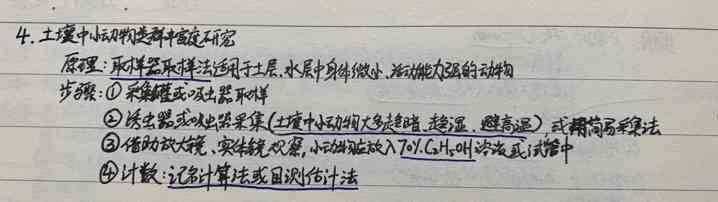 4. 土壤中小动物类群丰富度研究
原理:取样器取样法适用于土层、水层中身体微小、活动能力强的动物
步骤:① 采集罐或吸虫器取样
② 诱虫器或吸虫器采集(土壤中小动物大多趋暗、趋湿、避高温),或用简易采集法
③ 借助放大镜、实体镜观察,小动物应放入70% C₂H₅OH溶液或试管中
④ 计数:记名计算法或目测估计法